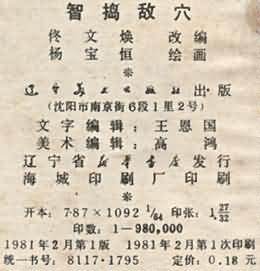 智捣敌穴
佟文焕 改编
杨宝恒 绘画
辽宁美术出版社出版
(沈阳市南京街6段1里2号)
文字编辑：王恩国
美术编辑：高鸿
辽宁省新华书店发行
海城印刷厂印刷
开本：787×1092 1/64 印张：1 27/32
印数：1—980,000
1981年2月第1版 1981年2月第1次印刷
统一书号：8117·1795 定价：0.18元